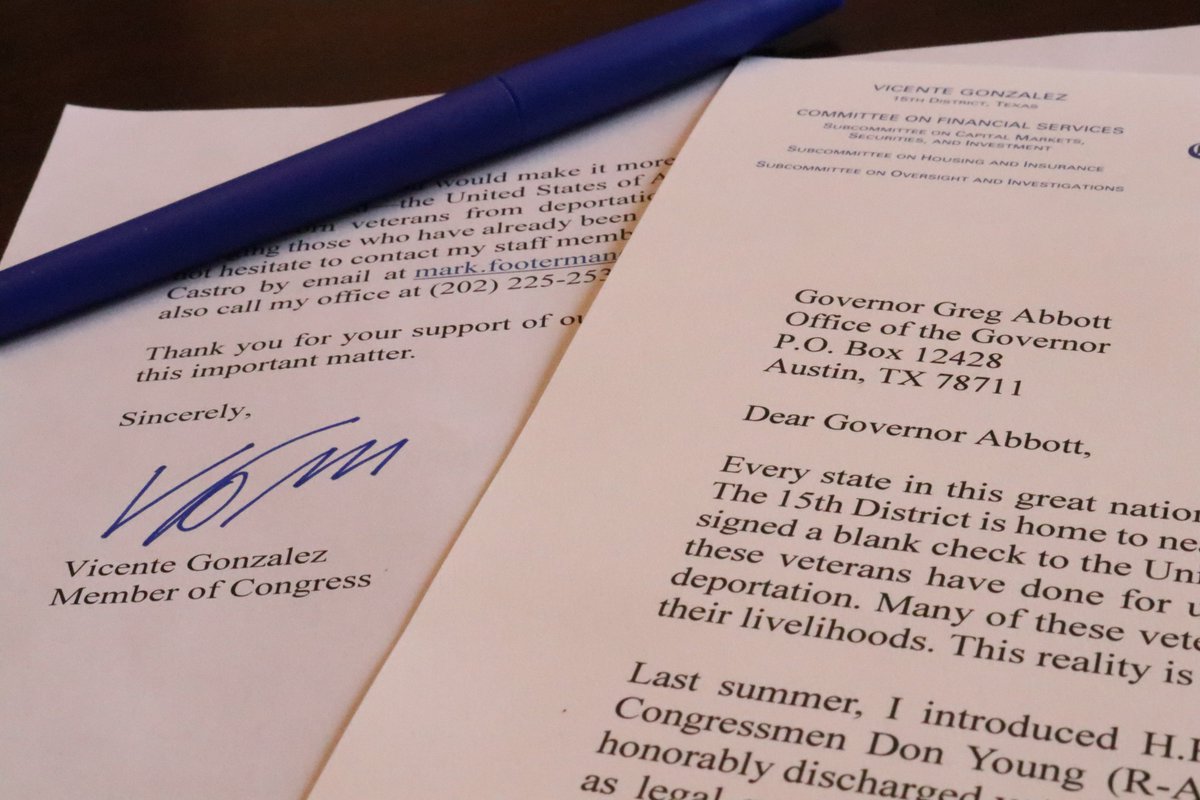 would make it more
the United States of A
veterans from deportatio
those who have already been
not hesitate to contact my staff memb
Castro by email at mark.footerman
also call my office at (202) 225-253
Thank you for your support of ou
this important matter.
Sincerely,
Vicente Gonzalez
Member of Congress
VICENTE GONZALEZ
15TH DISTRICT, TEXAS
COMMITTEE ON FINANCIAL SERVICES
SUBCOMMITTEE ON CAPITAL MARKETS,
SECURITIES, AND INVESTMENT
SUBCOMMITTEE ON HOUSING AND INSURANCE
SUBCOMMITTEE ON OVERSIGHT AND INVESTIGATIONS
Governor Greg Abbott
Office of the Governor
P.O. Box 12428
Austin, TX 78711
Dear Governor Abbott,
Every state in this great nation
The 15th District is home to nea
signed a blank check to the Uni
these veterans have done for u
deportation. Many of these vete
their livelihoods. This reality is
Last summer, I introduced H.R
Congressmen Don Young (R-A
honorably discharged
as legal